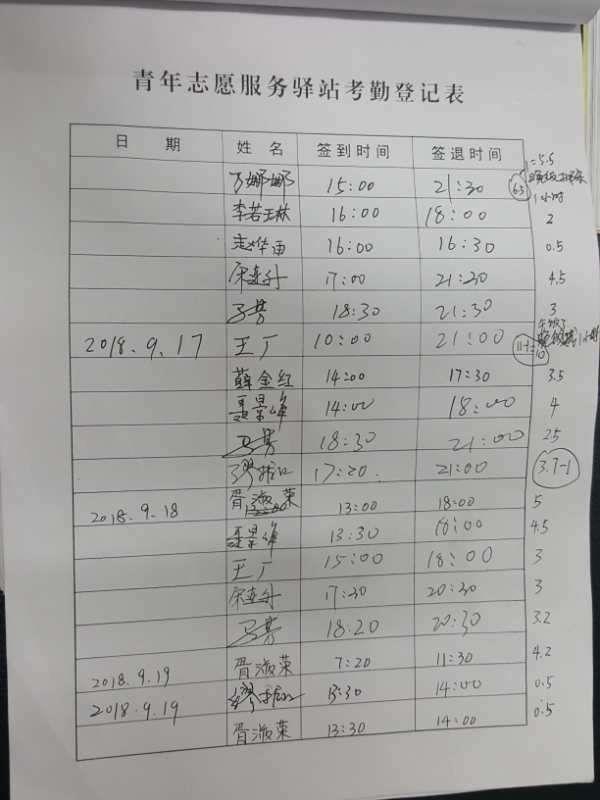 青年志愿服务驿站考勤登记表
日 期 姓 名 签到时间 签退时间
=5.5
万娜娜 15:00 21:30 6.5
1小时
李若王林 16:00 18:00 2
16:00 16:30 0.5
宋连升 17:00 21:30 4.5
18:30 21:30 3
2018.9.17 王丁 10:00 21:00 11-1=10
薛金红 14:00 17:30 3.5
聂景峰 14:00 18:00 4
18:30 21:00 25
17:20. 21:00 3.7-1
2018.9.18 胥淑荣 13:00 18:00 5
聂景峰 13:30 18:00 4.5
王丁 15:00 18:00 3
宋连升 17:30 20:30 3
18:20 20:30 3.2
2018.9.19 胥淑荣 7:20 11:30 4.2
2018.9.19 13:30 14:00 0.5
胥淑荣 13:30 14:00 0.5